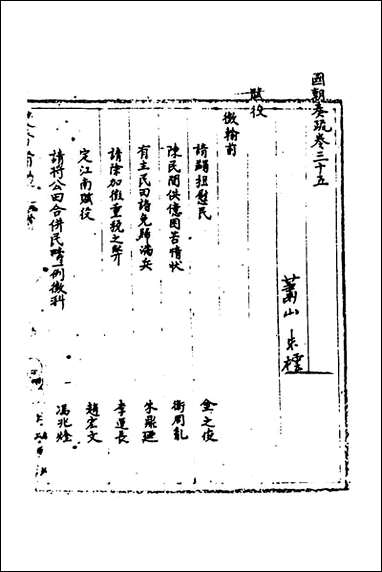 國朝奏疏卷三十五
蕭山朱橒
賦役
徵輸前
請蠲担慰民 金之俊
陳民間供億困苦情狀 衛周胤
有主民田請免歸滿兵 朱鼎延
請除加徵重稅之弊 李運長
定江南賦役 趙宏文
請將公田合併民畸一例徵科 馮兆煃